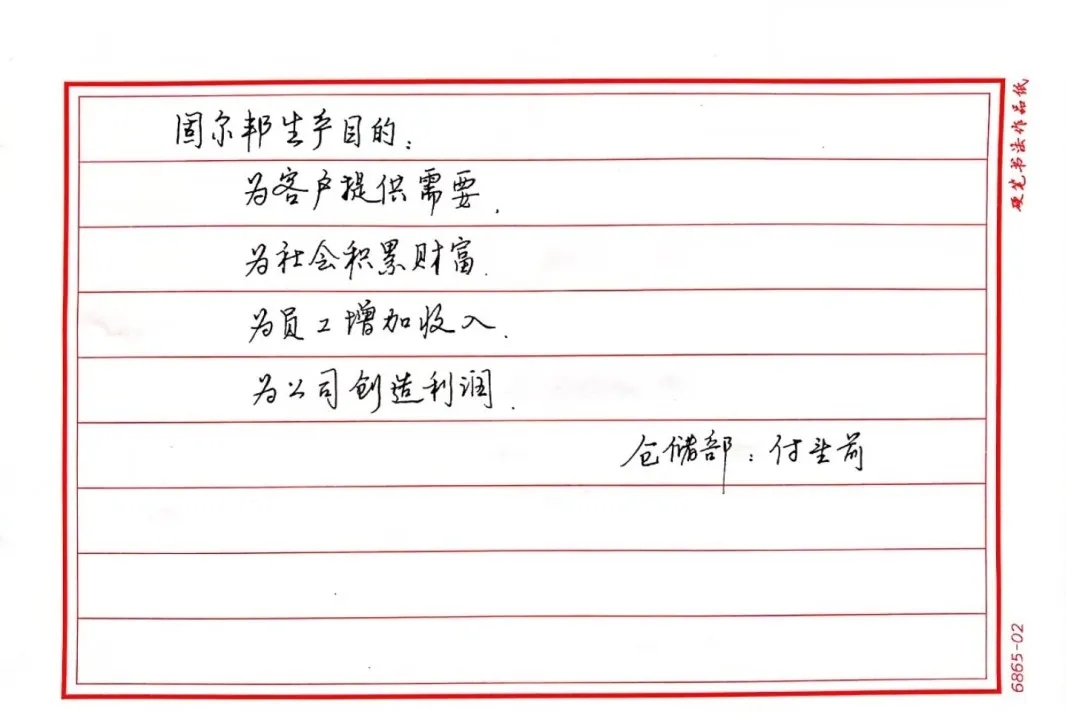 固尔邦生产目的：
为客户提供需要，
为社会积累财富.
为员工增加收入.
为公司创造利润.
仓储部：付
硬笔书法作品纸
6865-02